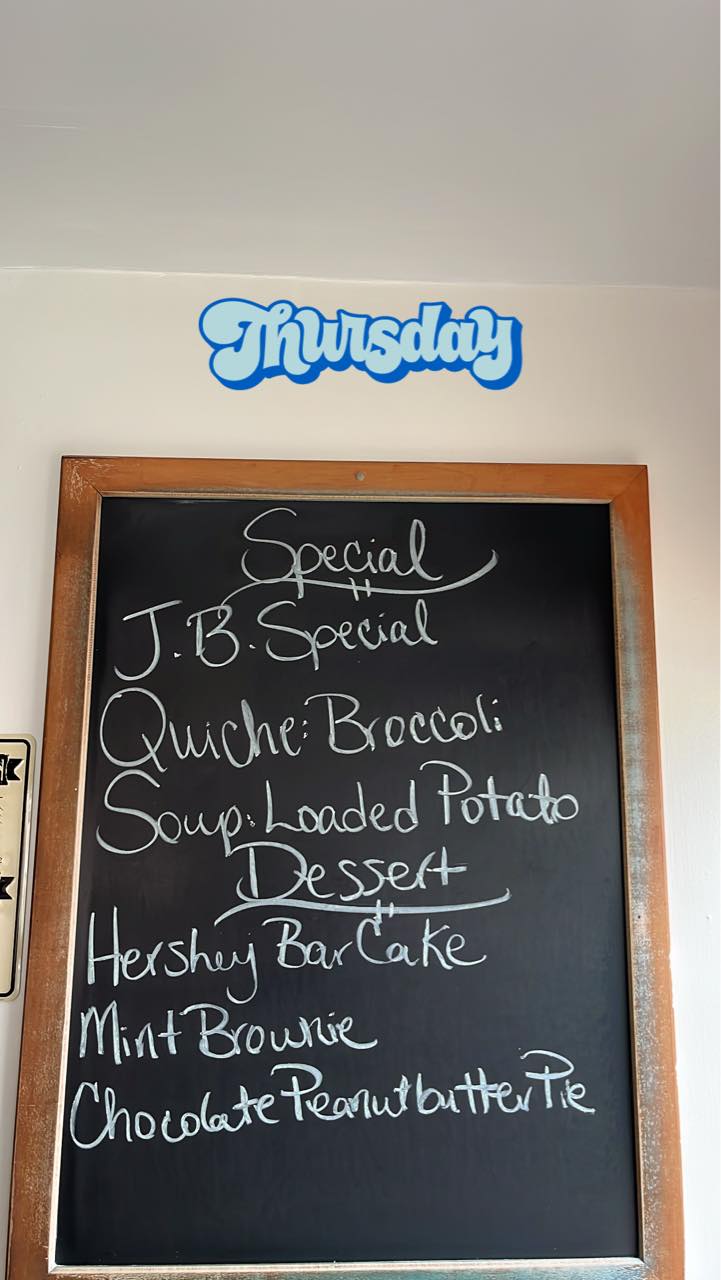 Thursday
Special
J.B. Special
Quiche: Broccoli
Soup: Loaded Potato
Dessert
Hershey Bar Cake
Mint Brownie
Chocolate Peanutbutter Pie